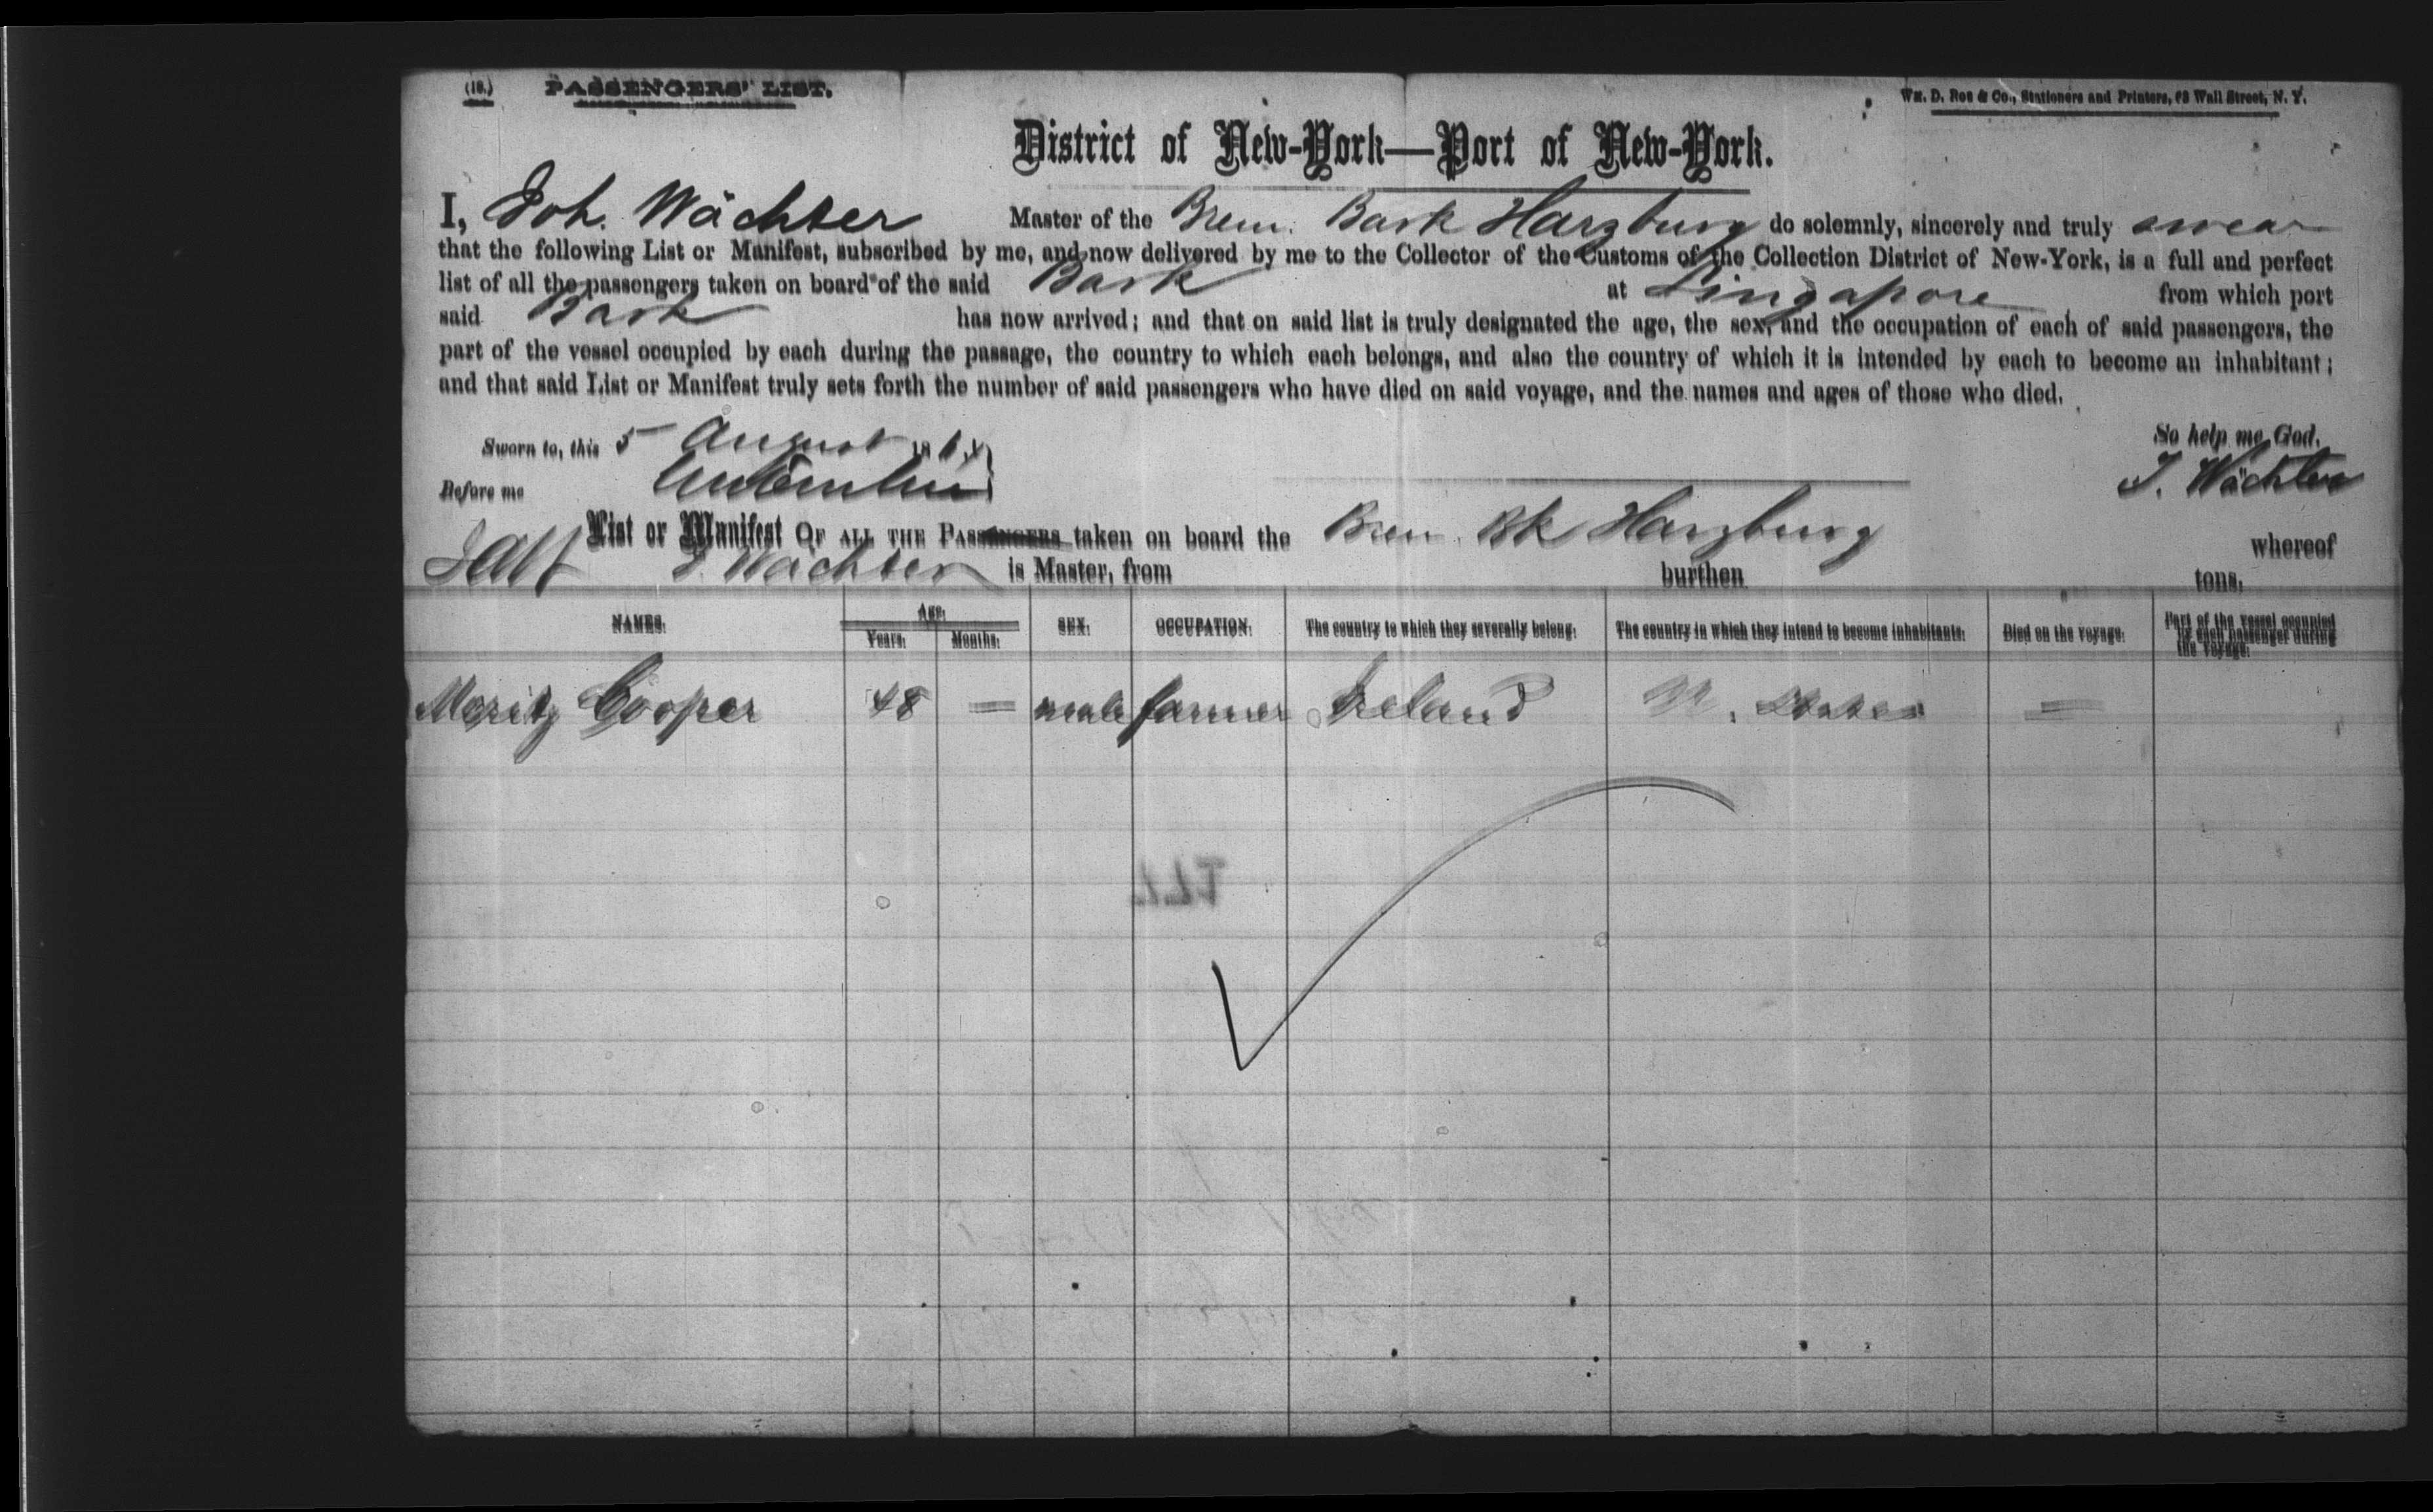 (18.) PASSENGERS' LIST. Wm. D. Roe & Co., Stationers and Printers, 63 Wall Street, N. Y.
District of New-York—Port of New-York.
I, Joh. Wächter Master of the Brem. Bark Harzburg do solemnly, sincerely and truly swear
that the following List or Manifest, subscribed by me, and now delivered by me to the Collector of the Customs of the Collection District of New-York, is a full and perfect
list of all the passengers taken on board of the said Bark at Singapore from which port
said Bark has now arrived; and that on said list is truly designated the age, the sex, and the occupation of each of said passengers, the
part of the vessel occupied by each during the passage, the country to which each belongs, and also the country of which it is intended by each to become an inhabitant;
and that said List or Manifest truly sets forth the number of said passengers who have died on said voyage, and the names and ages of those who died.
Sworn to, this 5 August 186 So help me God.
Before me J. Wächter
List or Manifest OF ALL THE PASSENGERS taken on board the Brem. Bk Harzburg whereof
J. Wächter is Master, from burthen tons.
NAMES. Age. Years. Months. SEX. OCCUPATION. The country to which they severally belong. The country in which they intend to become inhabitants. Died on the voyage. Part of the vessel occupied by each passenger during the voyage.
Moritz Cooper 48 = male farmer Ireland States =